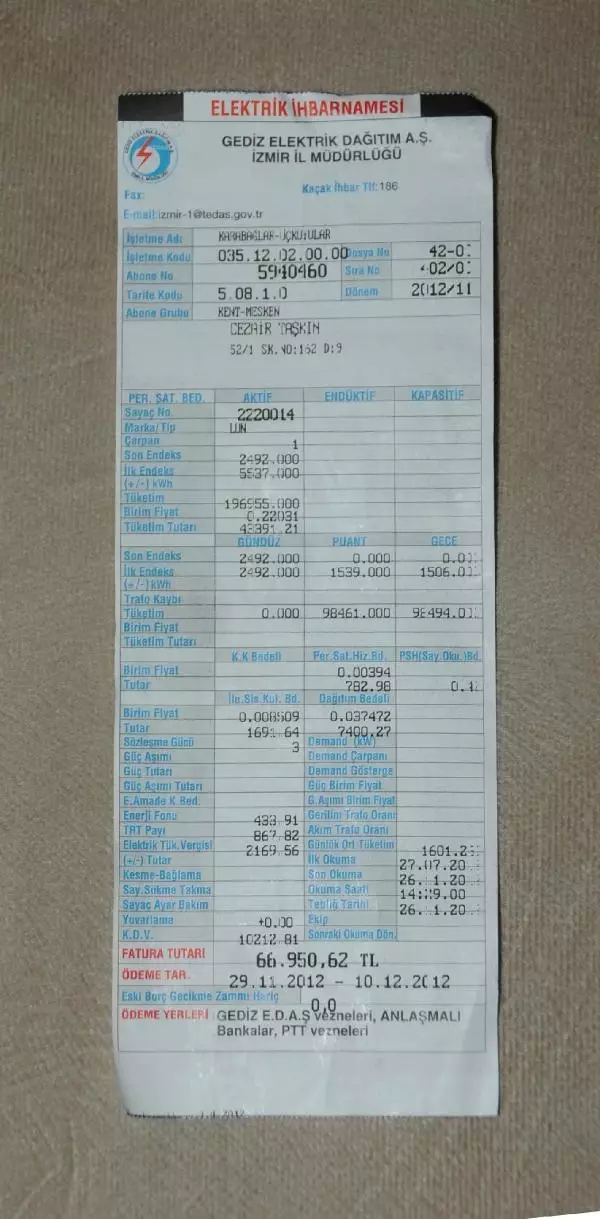 ELEKTRİK İHBARNAMESİ
GEDİZ ELEKTRİK DAĞITIM A.Ş.
İZMİR İL MÜDÜRLÜĞÜ
Fax: Kaçak İhbar Tlf: 186
E-mail:izmir-1@tedas.gov.tr
İşletme Adı KARABAĞLAR-ÜÇKUYULAR
İşletme Kodu 035.12.02.00.00 Dosya No 42-0
Abone No 5940460 Sıra No 02/0
Tarife Kodu 5.08.1.0 Dönem 2012/11
Abone Grubu KENT-MESKEN
CEZAİR TAŞKIN
52/1 SK.NO:162 D:9
PER. SAT. BED. AKTİF ENDÜKTİF KAPASİTİF
Sayaç No. 2220014
Marka/Tip LUN
Çarpan 1
Son Endeks 2492.000
İlk Endeks 5537.000
(+/-) kWh
Tüketim 196955.000
Birim Fiyat 0.22031
Tüketim Tutarı 43391.21
GÜNDÜZ PUANT GECE
Son Endeks 2492.000 0.000 0.0
İlk Endeks 2492.000 1539.000 1506.0
(+/-) kWh
Trafo Kaybı
Tüketim 0.000 98461.000 98494.0
Birim Fiyat
Tüketim Tutarı
K.K Bedeli Per.Sat.Hiz.Bd. PSH(Say.Oku.)Bd.
Birim Fiyat 0.00394
Tutar 782.98 0.4
İle.Sis.Kul. Bd. Dağıtım Bedeli
Birim Fiyat 0.008509 0.037472
Tutar 1691.64 7400.27
Sözleşme Gücü 3 Demand (kW)
Güç Aşımı Demand Çarpanı
Güç Tutarı Demand Gösterge
Güç Aşımı Tutarı Güç Birim Fiyat
E.Amade K.Bed. G.Aşımı Birim Fiyat
Enerji Fonu 433.91 Gerilim Trafo Oranı
TRT Payı 867.82 Akım Trafo Oranı
Elektrik Tük.Vergisi 2169.56 Günlük Ort Tüketim 1601.2
(+/-) Tutar İlk Okuma 27.07.20
Kesme-Bağlama Son Okuma 26. 1.20
Say.Sökme Takma Okuma Saati 14: 9.00
Sayaç Ayar Bakım Tebliğ Tarihi 26. 1.20
Yuvarlama +0.00 Ekip
K.D.V. 10212.81 Sonraki Okuma Dön.
FATURA TUTARI 66.950,62 TL
ÖDEME TAR. 29.11.2012 - 10.12.2012
Eski Borç Gecikme Zammı Hariç 0,0
ÖDEME YERLERİ GEDİZ E.D.A.Ş vezneleri, ANLAŞMALI
Bankalar, PTT vezneleri